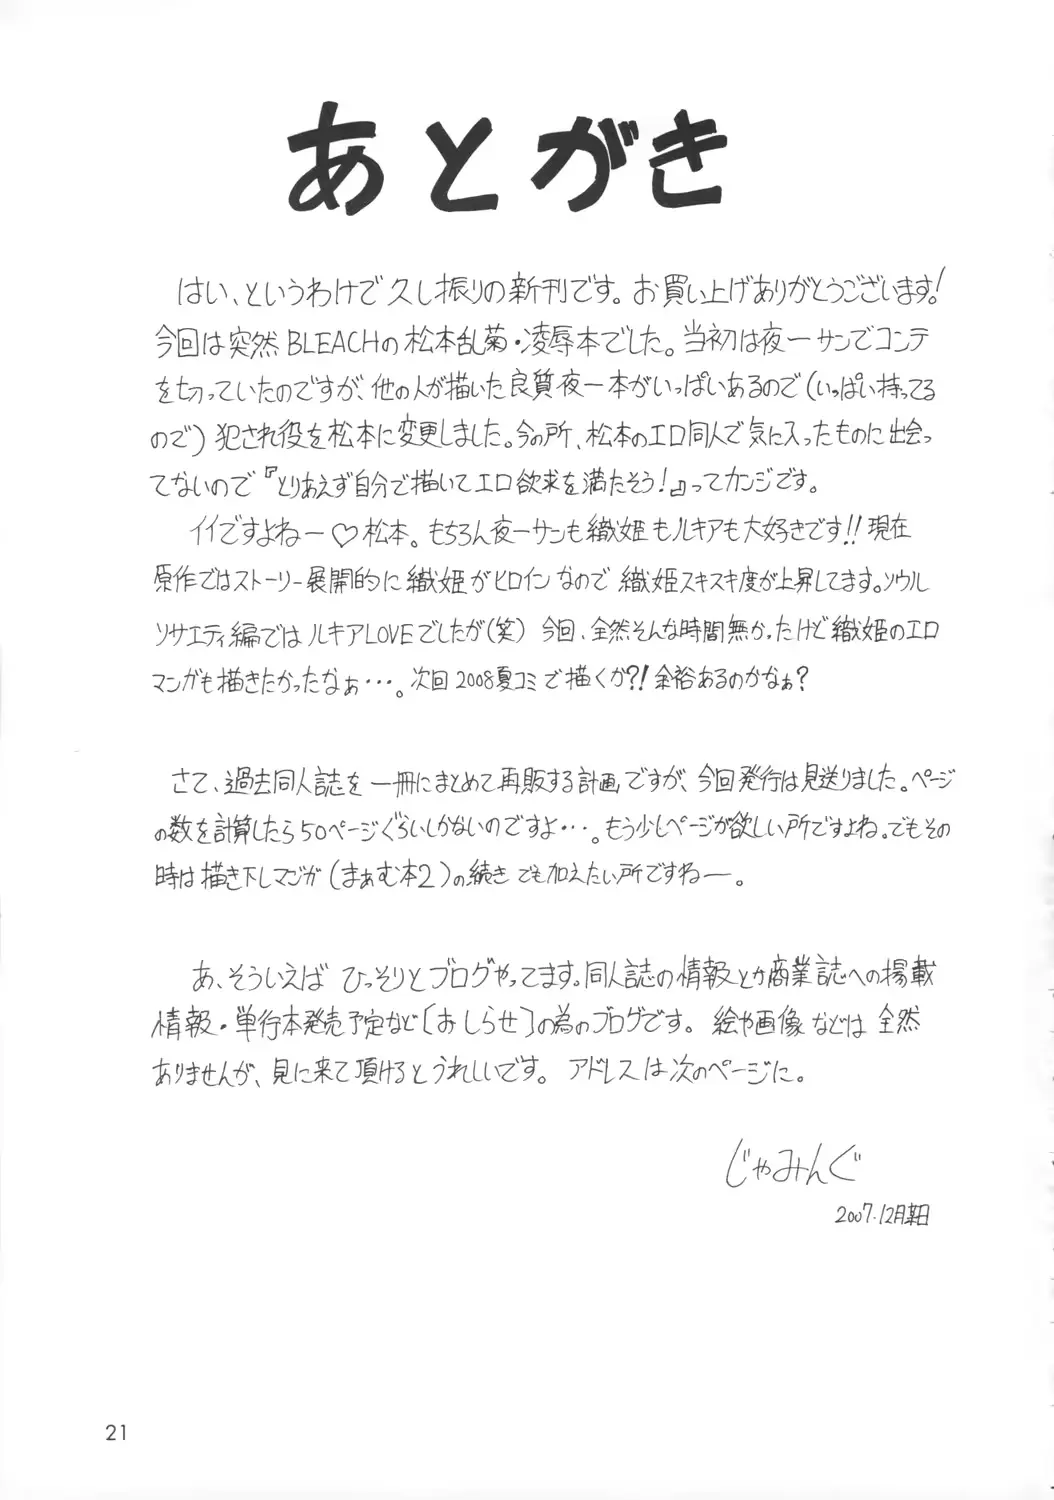 あとがき
はい、というわけで久し振りの新刊です。お買い上げありがとうございます!
今回は突然BLEACHの松本乱菊・凌辱本でした。当初は夜一サンでコンテ
を切っていたのですが、他の人が描いた良質夜一本がいっぱいあるので(いっぱい持ってる
ので)犯され役を松本に変更しました。今の所、松本のエロ同人で気に入ったものに出会っ
てないので『とりあえず自分で描いてエロ欲求を満たそう!』ってカンジです。
イイですよねー♡松本。もちろん夜一サンも織姫もルキアも大好きです!!現在
原作ではストーリー展開的に織姫がヒロインなので織姫スキスキ度が上昇してます。ソウル
ソサエティ編ではルキアLOVEでしたが(笑)今回、全然そんな時間無かったけど織姫のエロ
マンガも描きたかったなぁ…。次回2008夏コミで描くか?!余裕あるのかなぁ?
さて、過去同人誌を一冊にまとめて再販する計画ですが、今回発行は見送りました。ページ
の数を計算したら50ページぐらいしかないのですよ…。もう少しページが欲しい所ですよね。でもその
時は描き下しマンガ(まぁむ本2)の続きでも加えたい所ですねー。
あ、そういえばひっそりとブログやってます。同人誌の情報とか商業誌への掲載
情報・単行本発売予定など[おしらせ]の為のブログです。絵や画像などは全然
ありませんが、見に来て頂けるとうれしいです。アドレスは次のページに。
じゃみんぐ
2007.12月某日
21